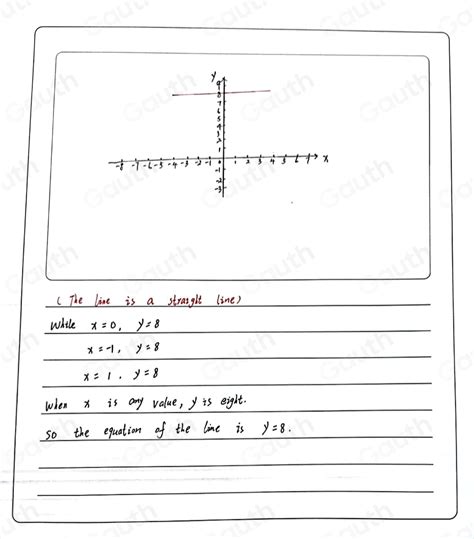 y
9
8
7
6
5
4
3
2
1
-8 -7 -6 -5 -4 -3 -2 -1 0 1 2 3 4 5 6 7 x
-1
-2
-3
( The line is a straight line)
While x=0, y=8
x=-1, y=8
x=1. y=8
When x is any value, y is eight.
So the equation of the line is y=8.
Gauth